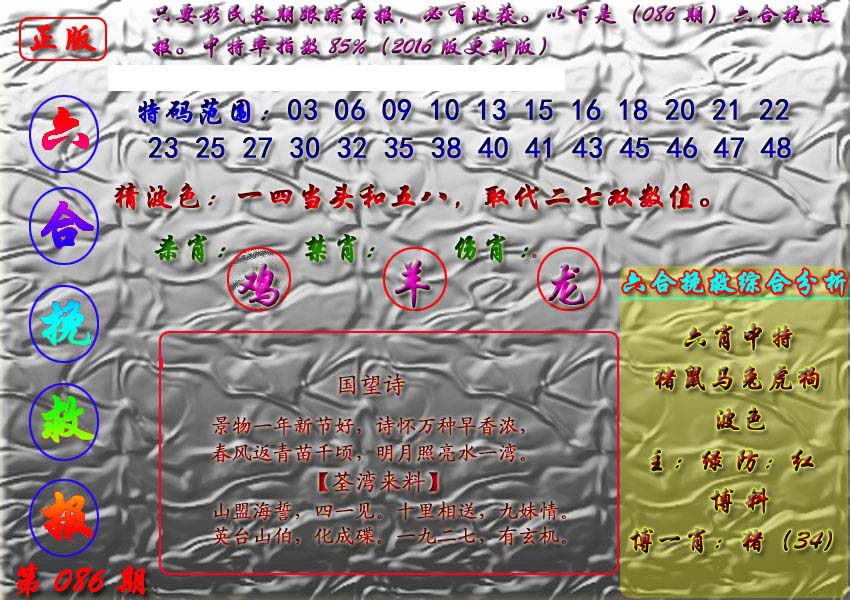 正版
只要彩民长期跟踪本报，必有收获。以下是（086期）六合挽救
报。中特率指数85%（2016版更新版）
六
合
挽
救
报
第086期
特码范围：03 06 09 10 13 15 16 18 20 21 22
23 25 27 30 32 35 38 40 41 43 45 46 47 48
猜波色：一四当头和五八，取代二七双数值。
杀肖：鸡 禁肖：羊 伤肖：龙
国望诗
景物一年新节好，诗怀万种早香浓，
春风返青苗千顷，明月照亮水一湾。
【荃湾来料】
山盟海誓，四一见。十里相送，九妹情。
英台山伯，化成碟。一九二七，有玄机。
六合挽救综合分析
六肖中特
猪鼠马兔虎狗
波色
主：绿防：红
博料
博一肖：猪（34）